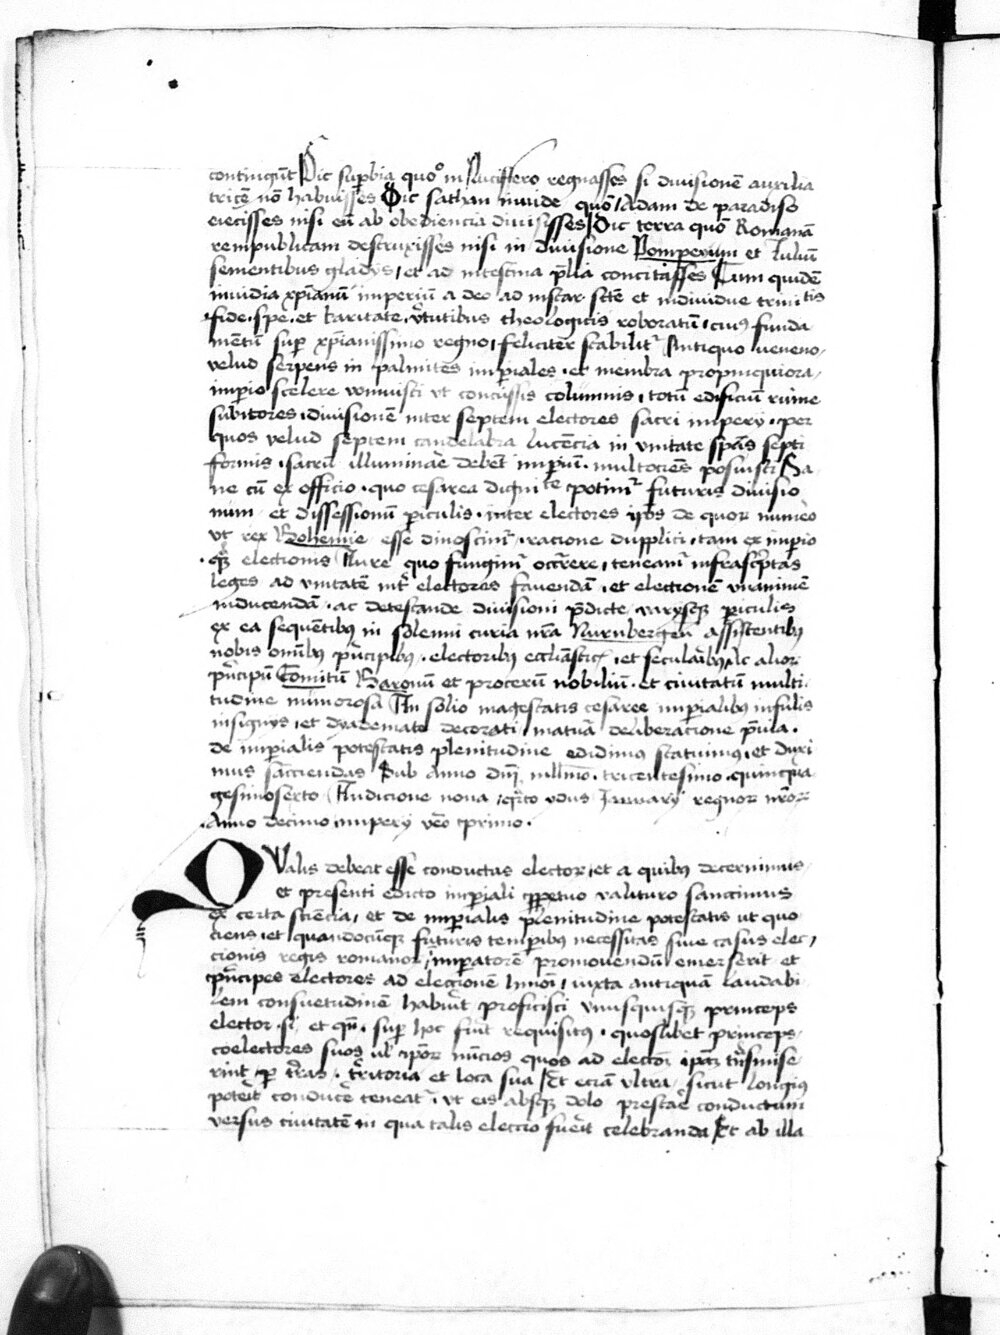 contingūt Dic supbia quoº in Lucifero regnasses si divisionē auxilia
tricē nō habuisses Dic sathan invide quōº Adam de paradiso
eiecisses nisi eū ab obediencia divisisses Dic terra quōº Romanā
rempublicam destruxisses nisi in divisione Pompeyum et Juliū
sementibus gladys, et ad intestina plia concitasses Tum quidē
invidia xpianū imperiū a deo ad instar scte et individue trinitatis
fide . spe . et karitate v̄tutibus theologicis roboratū, cuius funda
mentū sup xpianissimo regno, feliciter stabilit Antiquo veneno,
velud serpens in palmites impiales . et membra propinquiora,
impio scelere vomuisti ut concussis columnis, totū edificiū ruine
subitores . divisionē inter septem electores sacri impery . per
quos velud septem candelabra lucencia in unitate spūs septi
formis . sacrū illuminare debet impiū . multociens posuisti Sa
ne cū ex officio . quo cesarea dignite potimr futuris divisio
num et dissessionū piculis . inter electores ipos de quor numero
ut rex Bohemie esse dinoscimr . racione dupplici . tam ex impio
. qz electionis Jure quo fungimr occrrere, teneamr infrascptas
leges ad unitatē intr electores favendā . et electionē unanimē
inducendā . ac detestande divisioni pdicte varysqz piculis
ex ea sequētibus in solenni curia nra Nurnbergen assistentibus
nobis omībus pncipibus . electoribus eccliastic . et secularibus, Ac alior
pncipū Comitū Baronū et procerū nobiliū . et civitatū multi
tudine numorosa In solio magestatis cesaree impialibus infulis
insignys, et dyademate decorati, matura deliberacione pvia .
de impialis potestatis plenitudine edidimus statuimus, et duxi
mus sanctiendas Sub anno dni millmo . tricentesimo . quinqua
gesimosexto Indicione nona, qrto ydus January regnor nror
Anno decimo, impery vero primo .
Qvalis debeat esse conductas elector, et a quibus decernimus
et presenti edicto impiali ppetuo valituro sanctimus
ex certa sciencia, et de impialis plenitudine potestatis ut quo
ciens, et quandocūqz futuris tempibus necessitas sive casus elec,
cionis regis romanor, impatorē promovendū emerserit et
pncipes electores ad eleccionē hmoi, iuxta antiquā laudabi
lem consuetudinē habūit proficisci unusquisqz princeps
elector . si, et qn . sup hoc fuit requisitus . quoslibet princeps,
coelectores suos ul ipor nūcios quos ad electoz ipaz trasmise
rint p tras . trritoria et loca sua Et eciā ultra sicut longius
poterit conduce teneatr, ut eis absqz dolo prestare conductum
versus civitatē in qua talis eleccio fuerit celebranda Et ab illa